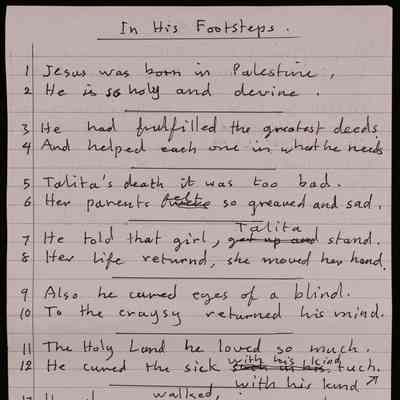 In His Footsteps.
1 Jesus was born in Palestine,
2 He is so holy and devine.
3 He had frulfilled the greatest deeds.
4 And helped each one in what he needs
5 Talita's death it was too bad.
6 Her parents felt so greaved and sad.
Talita
7 He told that girl, get up and stand.
8 Her life returnd, she moved her hand.
9 Also he cured eyes of a blind.
10 To the craysy returned his mind.
11 The Holy Land he loved so much.
with his kind
12 He cured the sick such in his tuch.
with his kind
walked,